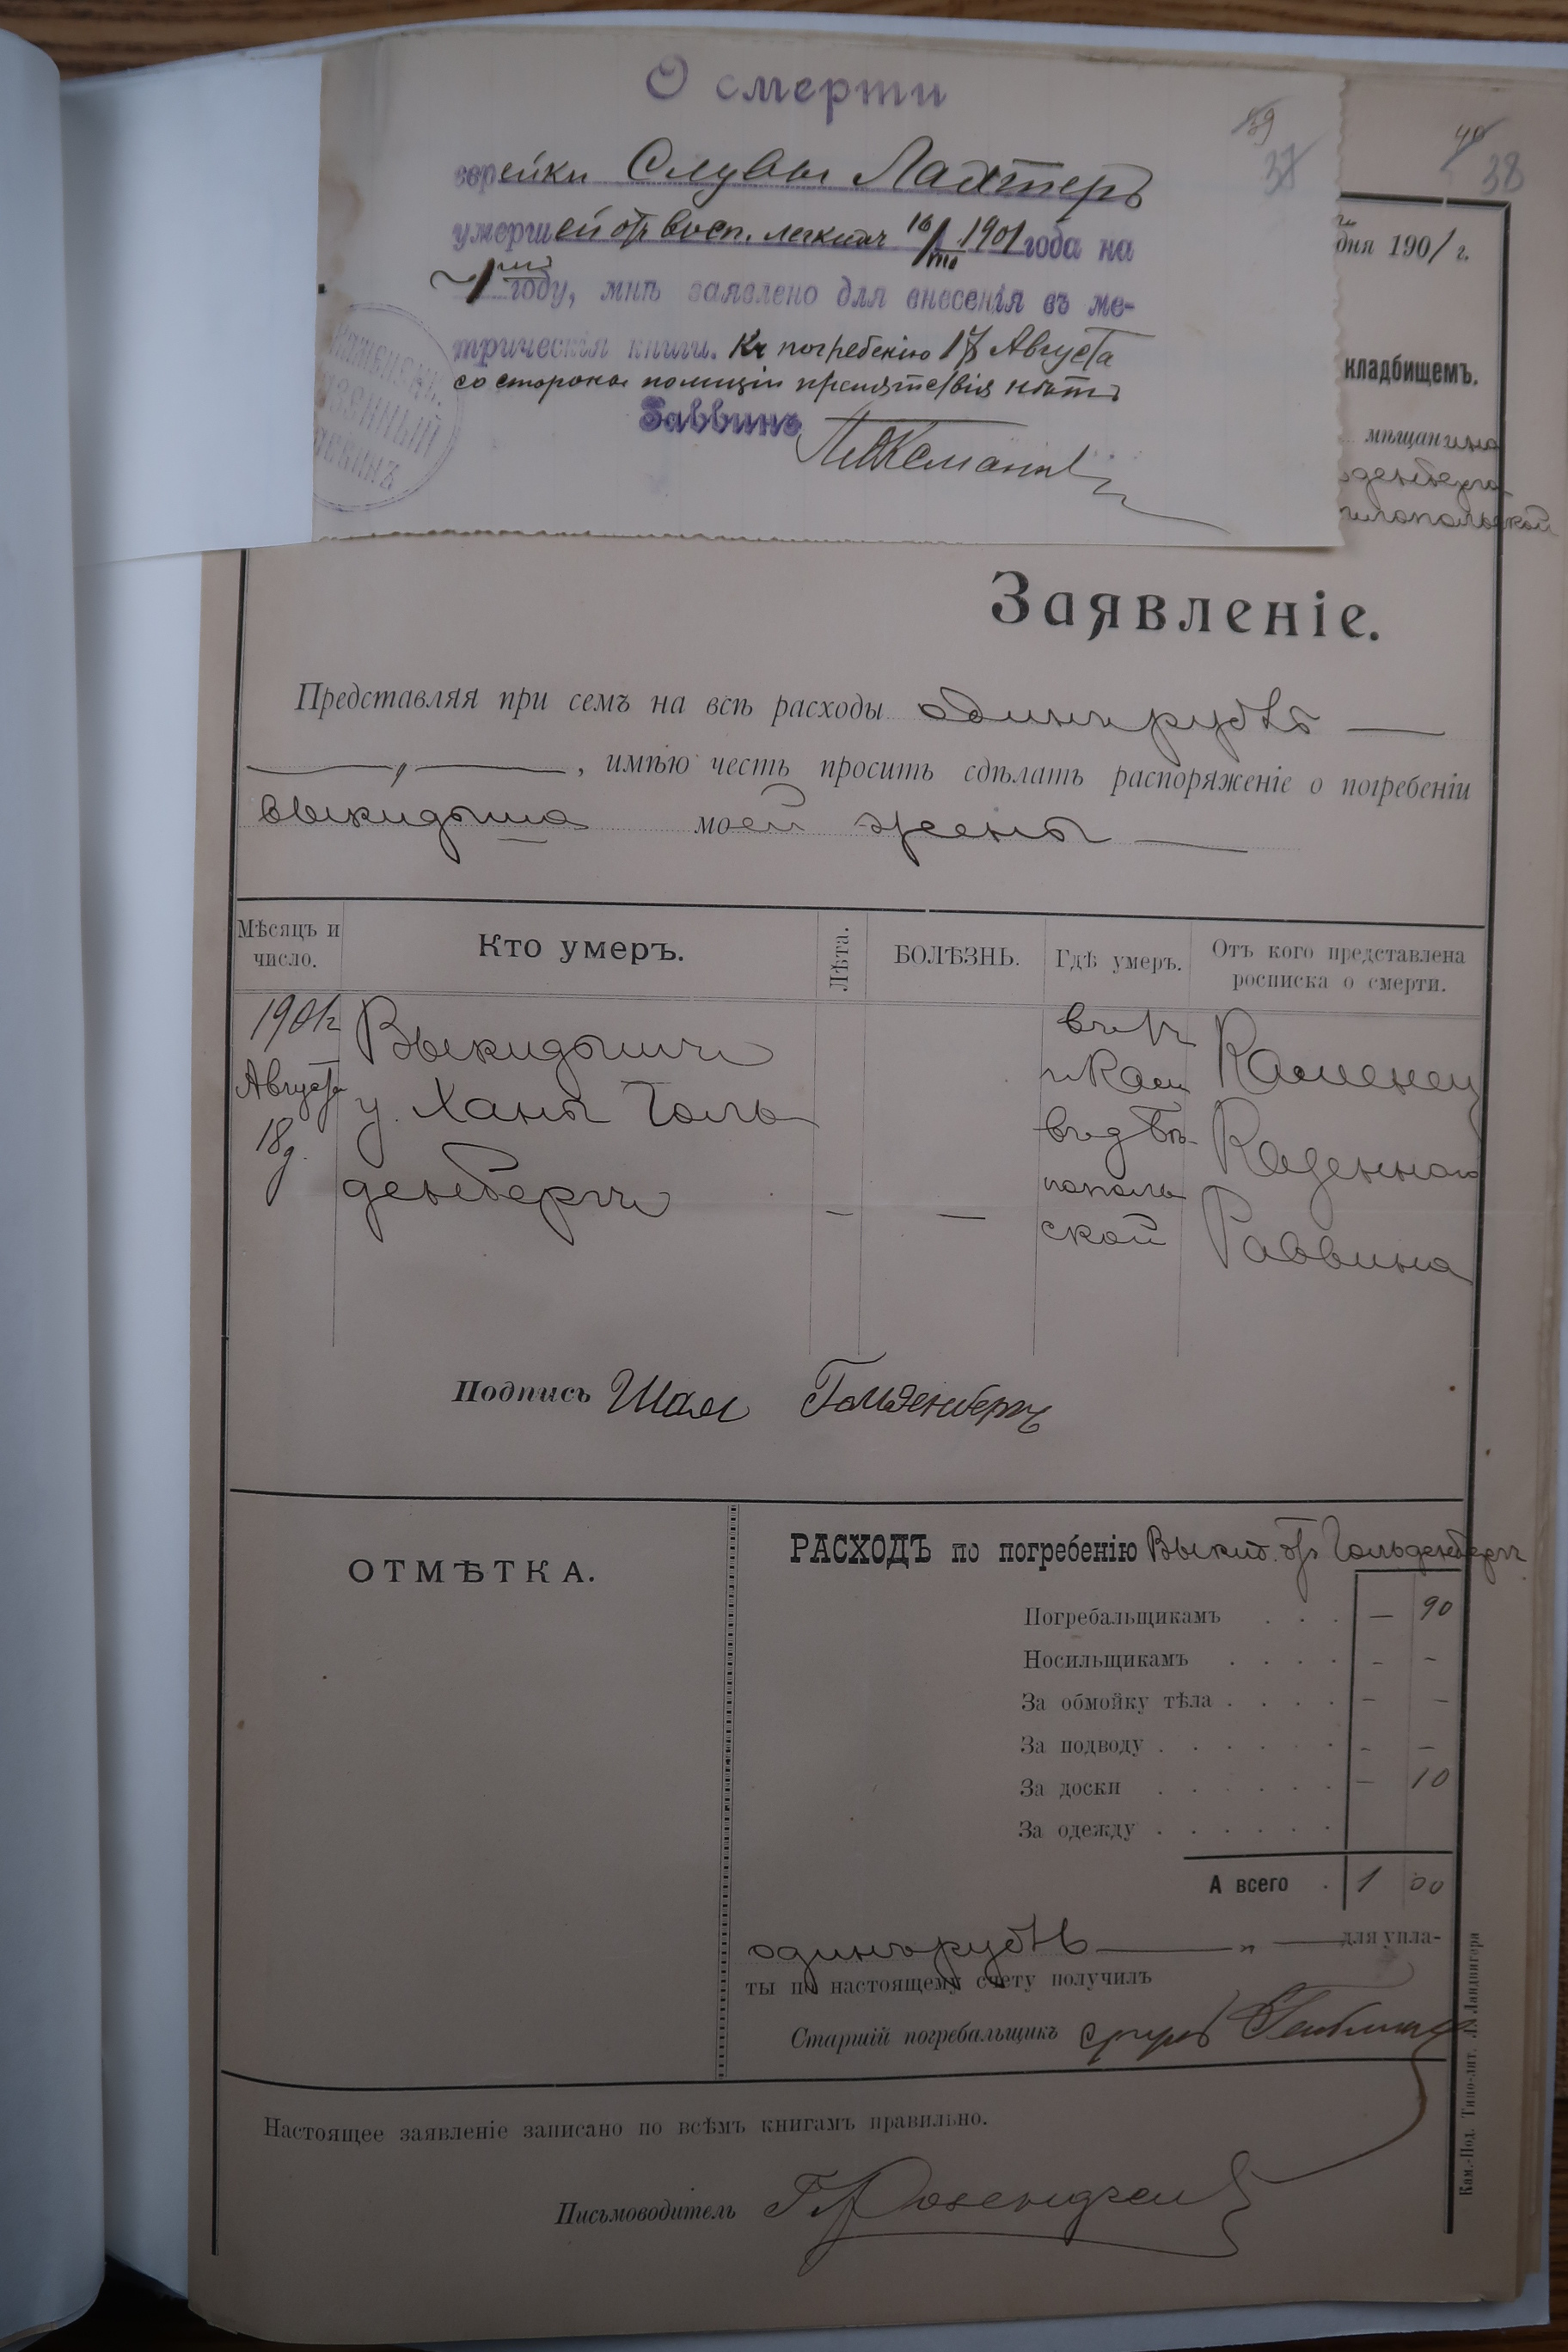 О смерти
39
37
еврейки Слувы Лахтеръ
умершей отъ восп. легкихъ 16/VIII 1901 года на
1 году, мнѣ заявлено для внесенія въ ме-
трическія книги. Къ погребенію 17 Августа
со стороны полиціи препятствія нѣтъ
Раввинъ
КАЗЕННЫЙ
РАВВИНЪ
40
38
дня 1901 г.
кладбищемъ.
мѣщанина
денберга
Заявленіе.
Представляя при семъ на всѣ расходы одинъ рубль —
— „ —, имѣю честь просить сдѣлать распоряженіе о погребеніи
выкидыша моей жены —
Мѣсяцъ и число.
Кто умеръ.
Лѣта.
БОЛѢЗНЬ.
Гдѣ умеръ.
Отъ кого представлена росписка о смерти.
1901 г.
Августа
18 д.
Выкидышъ
у Ханы Голь
денбергъ
—
—
въ гр
поль
ской
Каменец
Казеннаго
Раввина
Подпись Шая Гольденбергъ
ОТМѢТКА.
РАСХОДЪ по погребенію Выкид. отъ Гольденбергъ
Погребальщикамъ . . . — 90
Носильщикамъ . . . . - -
За обмойку тѣла . . . . - -
За подводу . . . . . . - -
За доски . . . . . . - 10
За одежду . . . . . .
А всего . 1 00
одинъ рубль — „ — для упла-
ты по настоящему счету получилъ
Старшій погребальщикъ
Настоящее заявленіе записано по всѣмъ книгамъ правильно.
Письмоводитель
Кам.-Под. Типо-лит. Л. Ландвигера